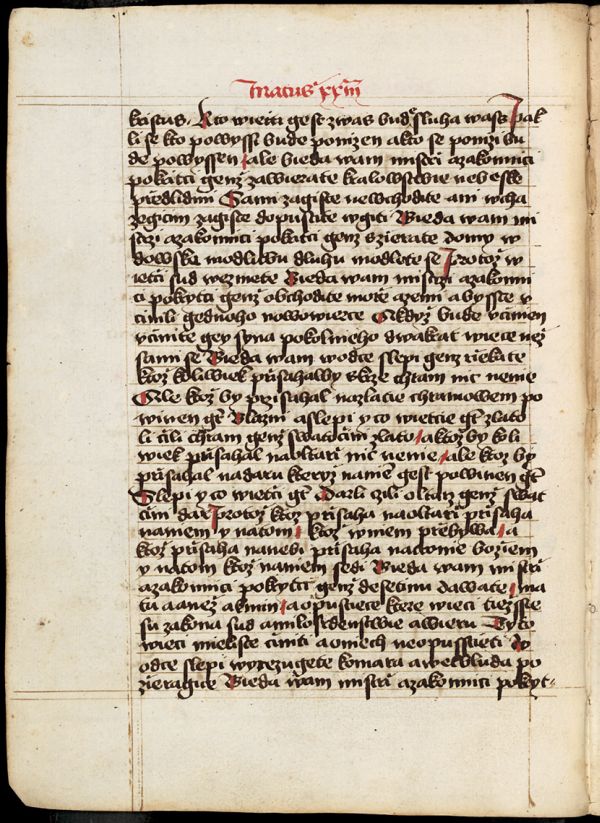 Matus xxiii
kristus. Kto wietci gest zwas bud sluha wass Pak
li se kto powyssi bude ponizen akto se ponizi bu
de powyssen ale bieda wam mistri azakonnici
pokritci genz zawierate kralowstwie nebeske
przedlidmi Sami zagiste newchodite ani wcha
zegicim zagiste dopustite wgiti Bieda wam mi
strzi azakonnici pokritci genz szierate domy w
dowska modlitwu dluhu modlece se Protoz w
ietci sud wezmete Bieda wam mistrzi azakonni
ci pokrytci genz obchodite more azemi abysste v
cinili gednoho nowowierce Akdyz bude vcinen
vcinite gey syna pekelneho dwakrat wiece nez
sami se Bieda wam wodce slepi genz rziekate
ktoz koliwiek prisahawy skrze chram nic nenie
Ale ktoz by przisahal nazlatie chramowem po
winen gt Blazni aslepi y co wietcie gt zlato
li cili chram genz swatcini zlato aktoz by koli
wiek prisahal naoltari nic nenie ale ktoz by
prisahal nadaru kteryz naniem gest powinen gt
Slepi y co wietci gt Darli czili oltarz genz swat
cini dar Protoz ktoz prisaha naoltari prisaha
naniem y natom ktoz wniem przebywa a
ktoz prisaha nanebi prisaha natronie boziem
y natom ktoz naniem sedi Bieda wam mistri
azakonnici pokrytci genz desetinu dawate ma
tu aanez akmin aopustiete kteze wieci tiezsie
su zakona sud amilosrdenstwie awieru Tyto
wieci mieliste ciniti aonech neopusstieti W
odce slepi wycezugete komara awelbluda po
zieragice Bieda wam mistri azakonnici pokryt-